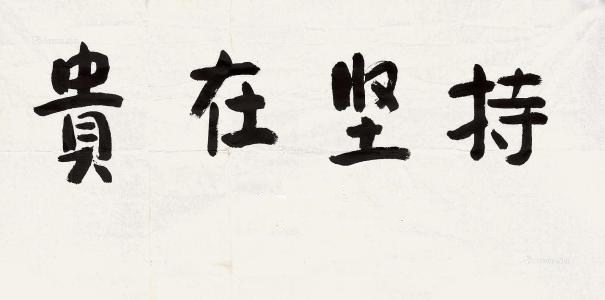 貴在坚持